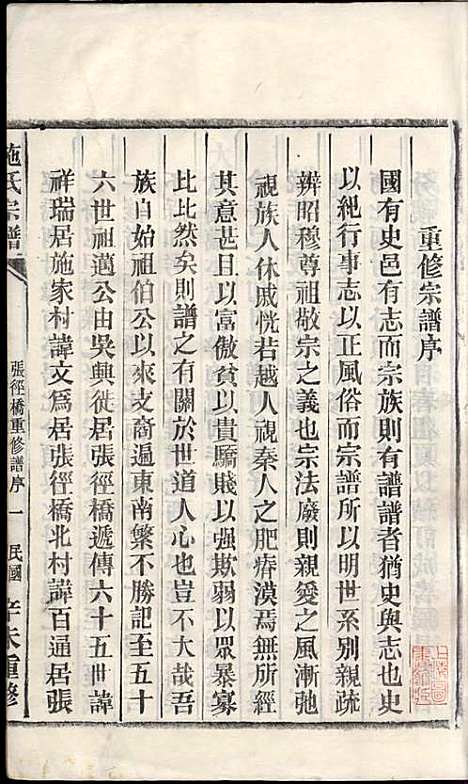 重修宗譜序
國有史邑有志而宗族則有譜譜者猶史與志也史
以紀行事志以正風俗而宗譜所以明世系別親疏
辨昭穆尊祖敬宗之義也宗法廢則親愛之風漸弛
視族人休戚恍若越人視秦人之肥瘠漠焉無所經
其意甚且以富傲貧以貴驕賤以強欺弱以眾暴寡
比比然矣則譜之有關於世道人心也豈不大哉吾
族自始祖伯公以來支裔遍東南繁不勝記至五十
六世祖邁公由吳興徙居張徑橋遞傳六十五世諱
祥瑞居施家村諱文爲居張徑橋北村諱百通居張
施氏宗譜
張徑橋重修譜序 一 民國
辛未重修